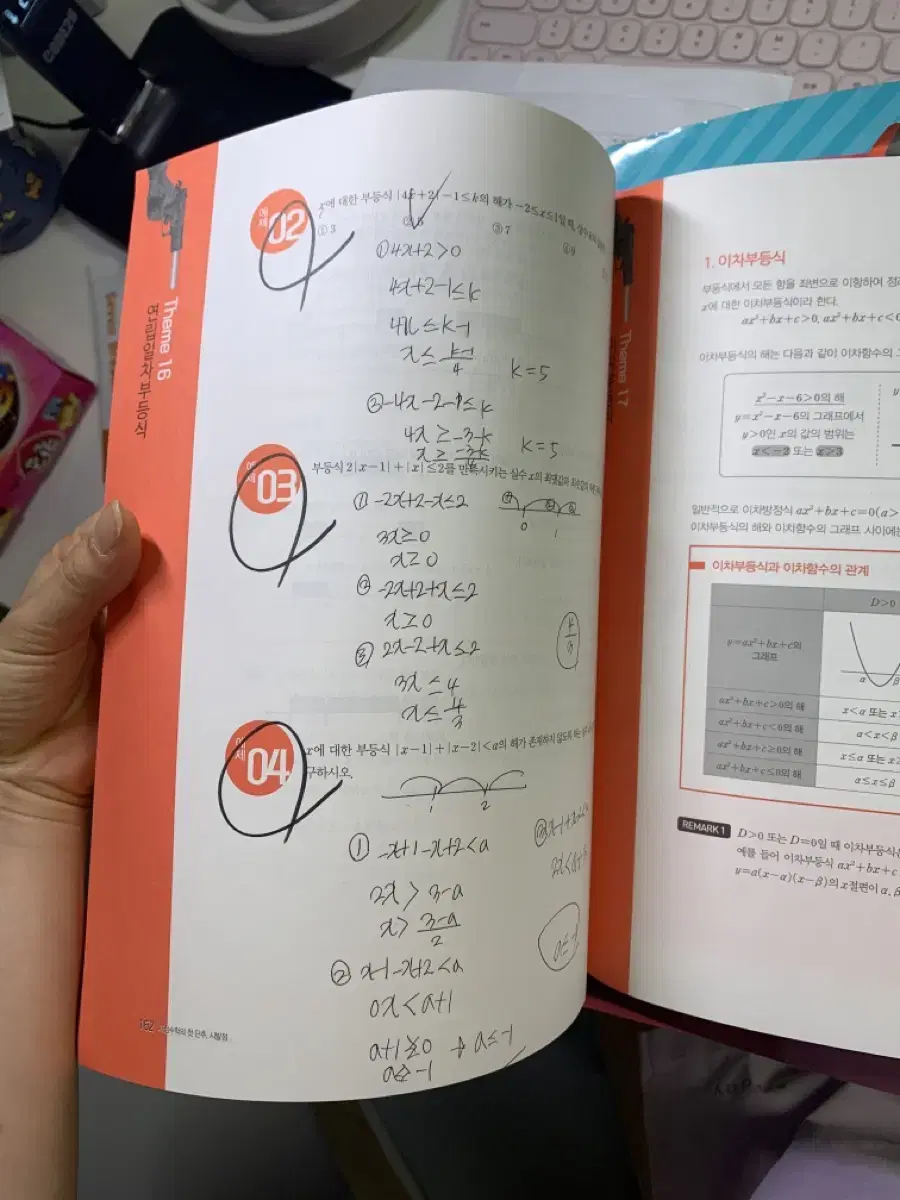 예제 02
x에 대한 부등식 |4x+2|-1≤k의 해가 -2≤x≤1일 때,
① 3 ② 5 ③ 7 ④ 9
①4x+2>0
4x+2-1≤k
4x≤k-1
k=5
②-4x-2-1≤k
4x≥-3-k
k=5
예제 03
부등식 2|x-1|+|x|≤2를 만족시키는 실수 x의 최댓값과
① -2x+2-x≤2
0 1
3x≥0
x≥0
② -2x+2+x≤2
x≥0
③ 2x-2+x≤2
3x≤4
x≤4/3
4/3
예제 04
x에 대한 부등식 |x-1|+|x-2|<a의 해가 존재하지 않도록 하는
구하시오.
1 2
① -x+1-x+2<a
2x>3-a
x>3-a/2
② x-1-x+2<a
0x<a+1
a≤-1
a+1≥0 → a≤-1
Theme 16
연립일차부등식
162 수학의 첫 단추, 시발점
Theme 17
1. 이차부등식
부등식에서 모든 항을 좌변으로 이항하여
x에 대한 이차부등식이라 한다.
ax²+bx+c>0, ax²+bx+c<0
이차부등식의 해는 다음과 같이 이차함수의
x²-x-6>0의 해
y=x²-x-6의 그래프에서
y>0인 x의 값의 범위는
x<-2 또는 x>3
일반적으로 이차방정식 ax²+bx+c=0(a>
이차부등식의 해와 이차함수의 그래프 사이에는
이차부등식과 이차함수의 관계
D>0
y=ax²+bx+c의
그래프
α β
ax²+bx+c>0의 해 x<α 또는 x
ax²+bx+c<0의 해 α<x<β
ax²+bx+c≥0의 해 x≤α 또는 x≥
ax²+bx+c≤0의 해 α≤x≤β
REMARK 1 D>0 또는 D=0일 때 이차부등식은
예를 들어 이차부등식 ax²+bx+c
y=a(x-α)(x-β)의 x절편이 α, β